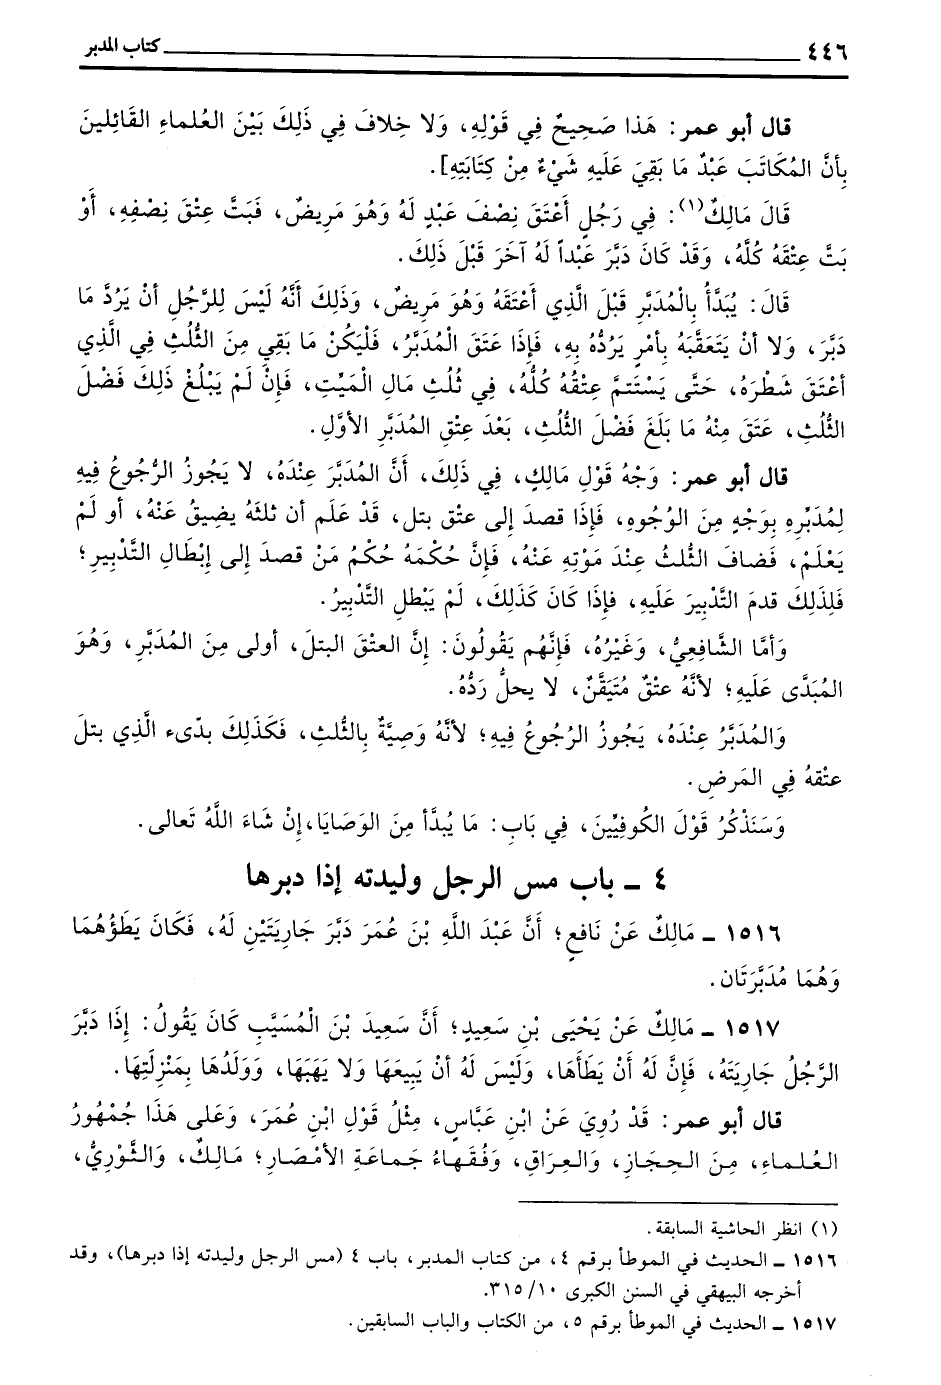 ٤٤٦ ـــــ كتاب المدبر
قال أبو عمر: هَذا صَحِيحٌ فِي قَوْلِهِ، وَلا خِلافَ فِي ذَلِكَ بَيْنَ العُلماءِ القَائِلينَ
بِأنَّ المُكَاتَبَ عَبْدٌ مَا بَقِيَ عَلَيهِ شَيْءٌ مِنْ كِتَابَتِهِ].
قَالَ مَالِكٌ(١): فِي رَجُلٍ أعْتَقَ نِصْفَ عَبْدٍ لَهُ وَهُوَ مَرِيضٌ، فَبَتَّ عِتْقَ نِصْفِهِ، أَوْ
بَتَّ عِتْقَهُ كُلَّهُ، وَقَدْ كَانَ دَبَّرَ عَبْداً لَهُ آخَرَ قَبْلَ ذَلِكَ.
قَالَ: يُبَدَّأُ بِالْمُدَبَّرِ قَبْلَ الَّذِي أَعْتَقَهُ وَهُوَ مَرِيضٌ، وَذَلِكَ أنَّهُ لَيْسَ لِلرَّجُلِ أنْ يَرُدَّ مَا
دَبَّرَ، وَلا أنْ يَتَعَقَّبَهُ بِأَمْرٍ يَرُدُّهُ بِهِ، فَإذَا عَتَقَ الْمُدَبَّرُ، فَلْيَكُنْ مَا بَقِي مِنَ الثُّلُثِ فِي الَّذِي
أعْتَقَ شَطْرَهُ، حَتَّى يَسْتَتمَّ عِتْقُهُ كُلُّهُ، فِي ثُلُثِ مَالِ الْمَيِّتِ، فَإنْ لَمْ يَبْلُغْ ذَلِكَ فَضْلَ
الثُّلُثِ، عَتَقَ مِنْهُ مَا بَلَغَ فَضْلَ الثُلثِ، بَعْدَ عِتْقِ المُدَبَّرِ الأوَّلِ.
قال أبو عمر: وَجْهُ قَوْلِ مَالِكٍ، فِي ذَلِكَ، أنَّ المُدَبَّرَ عِنْدَهُ، لا يَجُوزُ الرُّجُوعُ فِيهِ
لِمُدَبِّرِهِ بِوَجْهٍ مِنَ الوُجُوهِ، فَإذَا قصدَ إلى عتْقٍ بتل، قَدْ عَلَم أن ثلثَهُ يضِيقُ عَنْهُ، أو لَمْ
يَعْلَمْ، فَضافَ الثُلثُ عِنْدَ مَوْتِهِ عَنْهُ، فَإنَّ حُكْمَهُ حُكْمُ مَنْ قصدَ إلى إبْطَالِ التَّدْبِيرِ؛
فَلِذَلِكَ قدمَ التَّدْبِيرَ عَلَيهِ، فإذَا كَانَ كَذَلِكَ، لَمْ يَبْطلِ التَّدْبِيرُ.
وَأمَّا الشَّافِعِيُّ، وَغَيْرُهُ، فَإنَّهُم يَقُولُونَ: إنَّ العتْقَ البتلَ، أولى مِنَ المُدَبَّرِ، وَهُوَ
المُبَدَّى عَلَيهِ؛ لأنَّهُ عتْقٌ مُتَيَقَّنٌ، لا يحلُّ رَدُّهُ.
وَالمُدَبَّرُ عِنْدَهُ، يَجُوزُ الرُجُوعُ فِيهِ؛ لأنَّهُ وَصِيَّةٌ بِالثُلثِ، فَكَذَلِكَ بدّىء الَّذِي بتلَ
عتْقهُ فِي المَرضِ.
وَسَنَذْكُرُ قَوْلَ الكُوفِيِّينَ، فِي بَابِ: مَا يُبَدَّأ مِنَ الوَصَايَا، إنْ شَاءَ اللَّهُ تَعالى.
٤ ـ باب مس الرجل وليدته إذا دبرها
١٥١٦ ـ مَالِكٌ عَنْ نَافِعٍ؛ أنَّ عَبْدَ اللَّهِ بْنَ عُمَرَ دَبَّرَ جَارِيَتَيْنِ لَهُ، فَكَانَ يَطَؤُهُمَا
وَهُمَا مُدَبَّرَتَان.
١٥١٧ ـ مَالِكٌ عَنْ يَحْيَى بْنِ سَعِيدٍ؛ أنَّ سَعِيدَ بْنَ الْمُسَيَّبِ كَانَ يَقُولُ: إذَا دَبَّرَ
الرَّجُلُ جَارِيَتَهُ، فَإنَّ لَهُ أنْ يَطَأَهَا، وَلَيْسَ لَهُ أنْ يَبِيعَهَا وَلا يَهَبَهَا، وَوَلَدُهَا بِمَنْزِلَتِهَا.
قال أبو عمر: قَدْ رُوِيَ عَنْ ابنِ عَبَّاسٍ، مِثْلُ قَوْلِ ابْنِ عُمَرَ، وَعَلى هَذَا جُمْهُورُ
العُلماءِ، مِنَ الحِجَازِ، وَالعِراقِ، وَفُقَهاءُ جَماعَةِ الأمْصَارِ؛ مَالِكٌ، وَالثَّوْرِيُّ،
(١) انظر الحاشية السابقة.
١٥١٦ ـ الحديث في الموطأ برقم ٤، من كتاب المدبر، باب ٤ (مس الرجل وليدته إذا دبرها)، وقد
أخرجه البيهقي في السنن الكبرى ١٠/ ٣١٥.
١٥١٧ ـ الحديث في الموطأ برقم ٥، من الكتاب والباب السابقين.